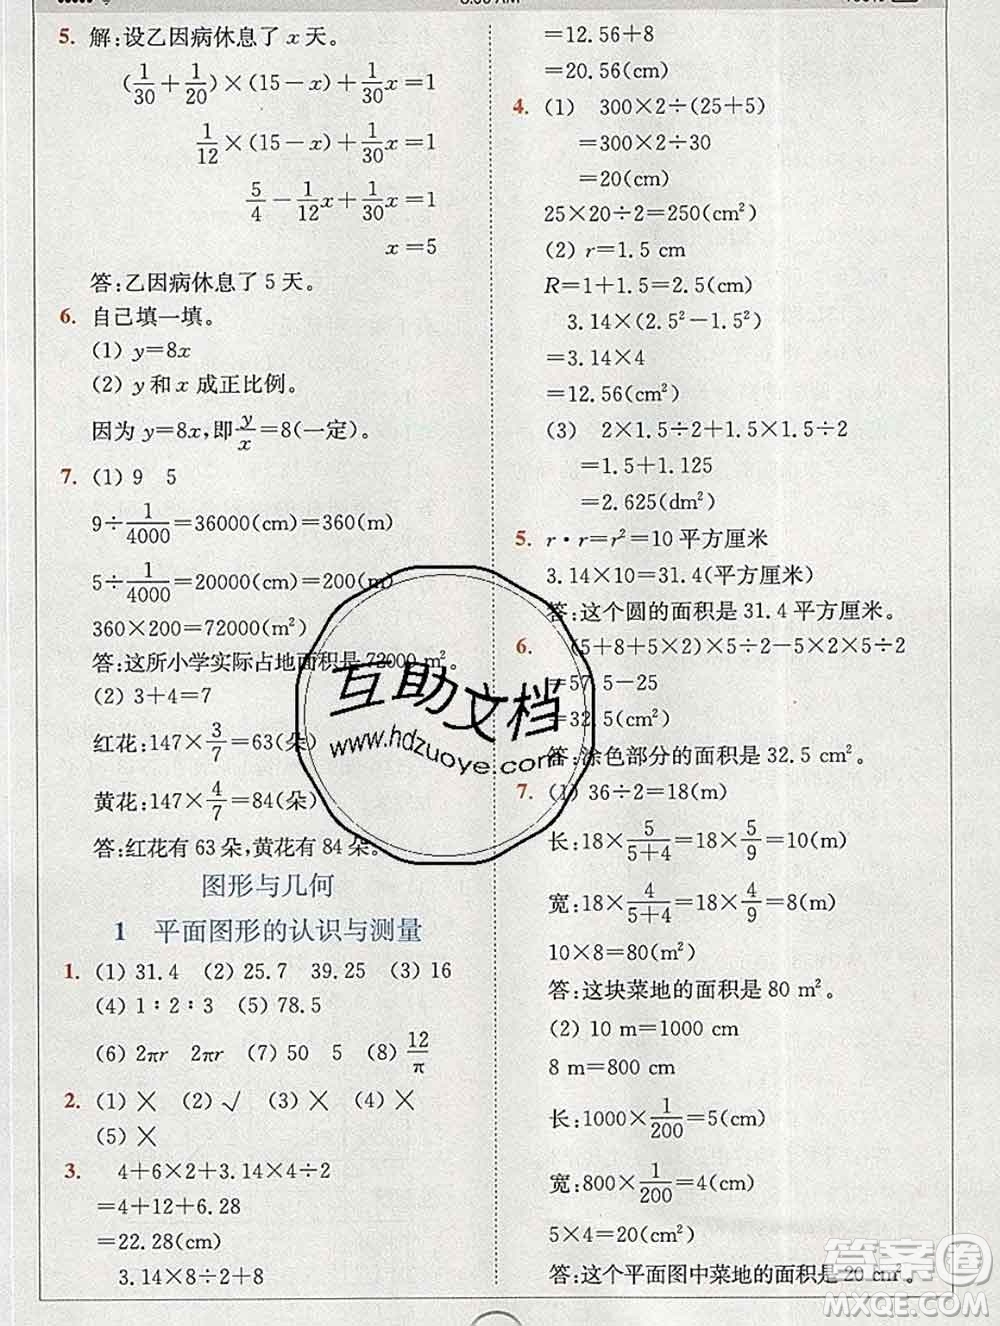 5. 解:设乙因病休息了 x 天。
(1/30+1/20)×(15－x)+1/30x=1
1/12×(15－x)+1/30x=1
5/4－1/12x+1/30x=1
x=5
答:乙因病休息了 5 天。
6. 自己填一填。
(1) y=8x
(2) y 和 x 成正比例。
因为 y=8x,即y/x=8(一定)。
7. (1) 9 5
9÷1/4000=36000(cm)=360(m)
5÷1/4000=20000(cm)=200(m)
360×200=72000(m²)
答:这所小学实际占地面积是 72000 m²。
(2) 3+4=7
红花:147×3/7=63(朵)
黄花:147×4/7=84(朵)
答:红花有 63 朵,黄花有 84 朵。
图形与几何
1 平面图形的认识与测量
1. (1) 31.4 (2) 25.7 39.25 (3) 16
(4) 1∶2∶3 (5) 78.5
(6) 2πr 2πr (7) 50 5 (8) 12/π
2. (1) × (2) √ (3) × (4) ×
(5) ×
3. 4+6×2+3.14×4÷2
=4+12+6.28
=22.28(cm)
3.14×8÷2+8
=12.56+8
=20.56(cm)
4. (1) 300×2÷(25+5)
=300×2÷30
=20(cm)
25×20÷2=250(cm²)
(2) r=1.5 cm
R=1+1.5=2.5(cm)
3.14×(2.5²－1.5²)
=3.14×4
=12.56(cm²)
(3) 2×1.5÷2+1.5×1.5÷2
=1.5+1.125
=2.625(dm²)
5. r·r=r²=10 平方厘米
3.14×10=31.4(平方厘米)
答:这个圆的面积是 31.4 平方厘米。
6. (5+8+5×2)×5÷2－5×2×5÷2
=57.5－25
=32.5(cm²)
答:涂色部分的面积是 32.5 cm²。
7. (1) 36÷2=18(m)
长:18×5/5+4=18×5/9=10(m)
宽:18×4/5+4=18×4/9=8(m)
10×8=80(m²)
答:这块菜地的面积是 80 m²。
(2) 10 m=1000 cm
8 m=800 cm
长:1000×1/200=5(cm)
宽:800×1/200=4(cm)
5×4=20(cm²)
答:这个平面图中菜地的面积是 20 cm²。
互助文档
www.hdzuoye.com
答案圈
MXQE.COM